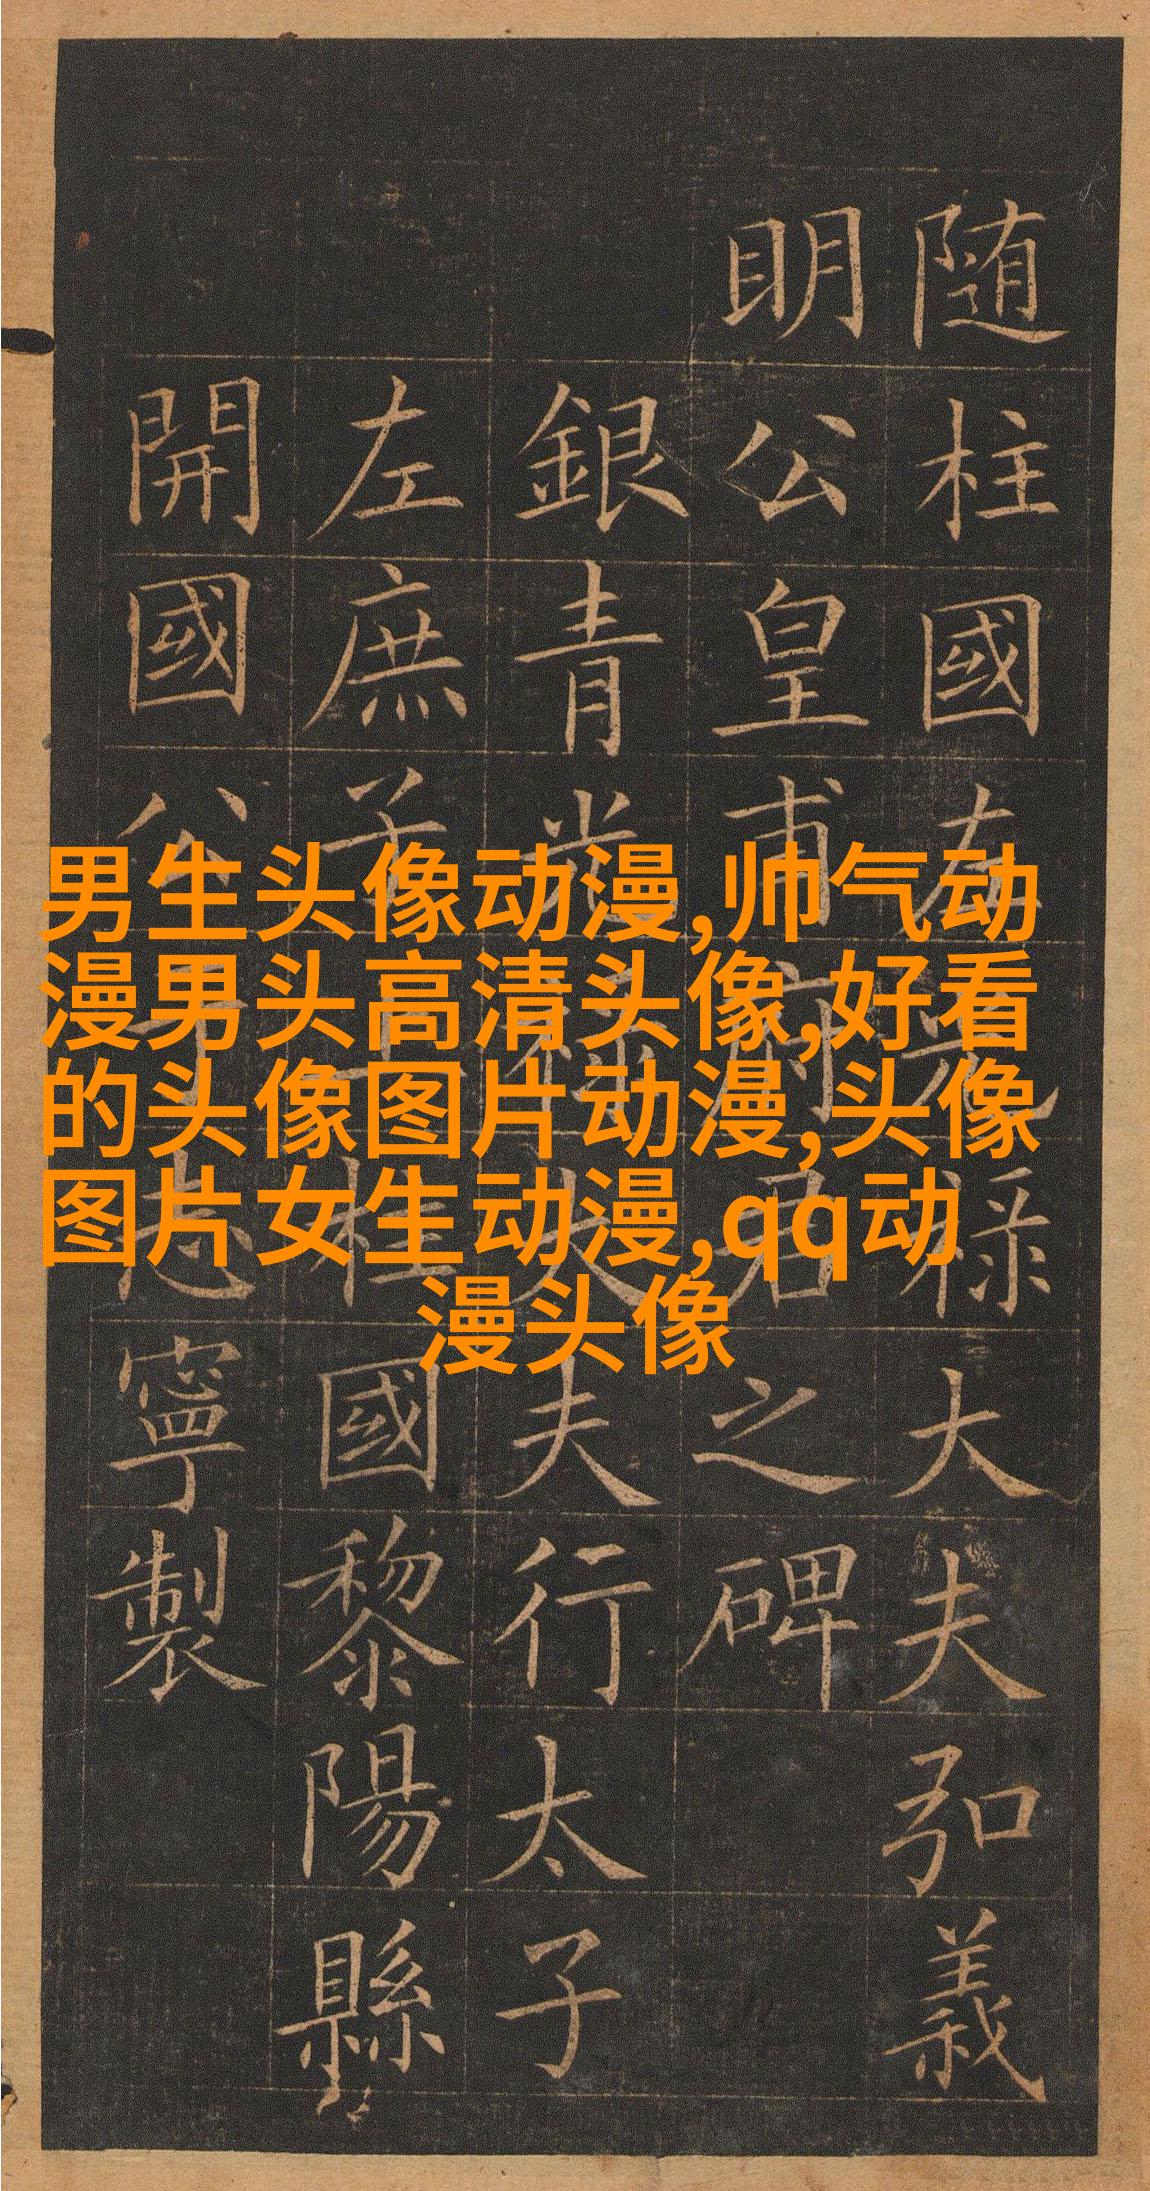 随柱國左光祿大夫弘義
明公皇甫府君之碑
銀青光祿大夫行太子
左庶子上柱國黎陽縣
開國公于志寧製
男生头像动漫,帅气动
漫男头高清头像,好看
的头像图片动漫,头像
图片女生动漫,qq动
漫头像